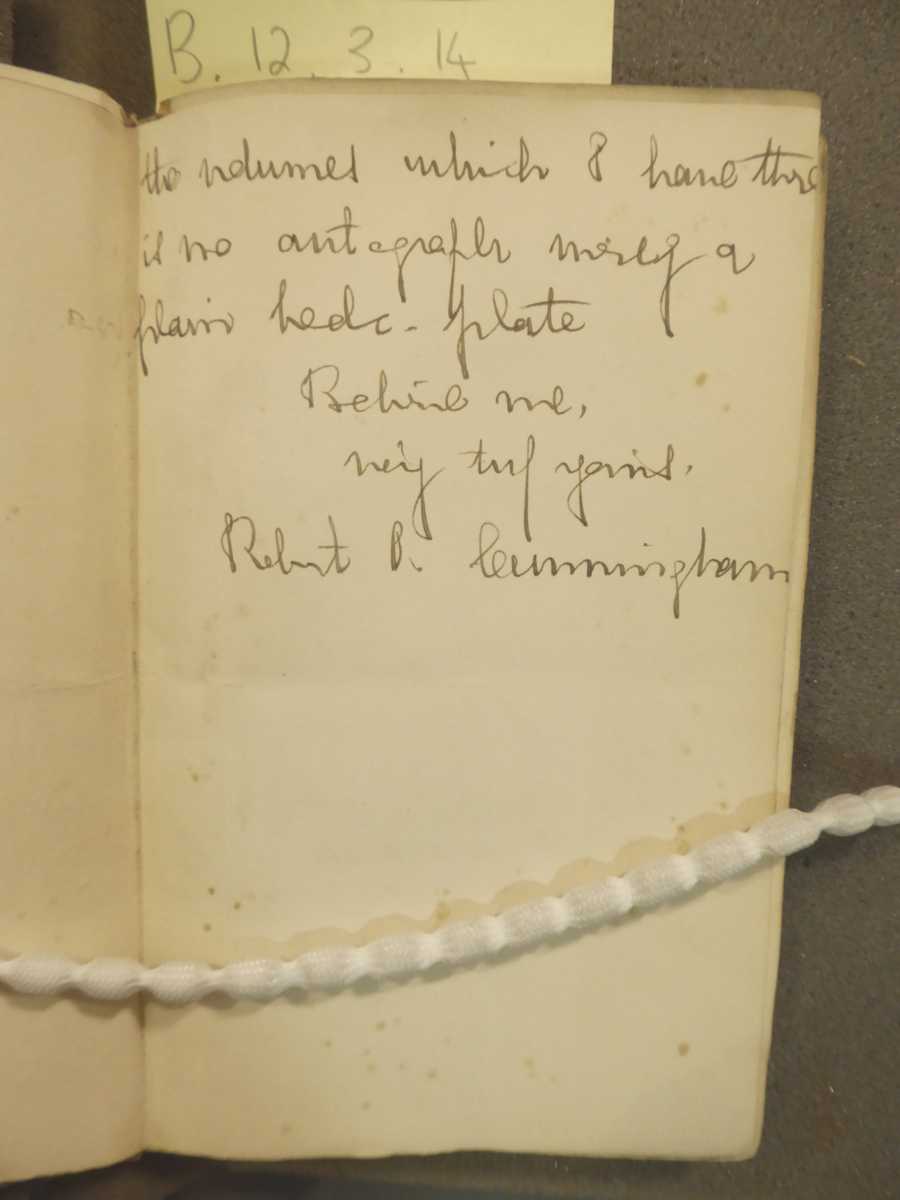 B. 12. 3. 14
the volumes which I have there
is no autograph merely a
plain book-plate
Believe me,
very truly yours.
Robert P. Cunningham